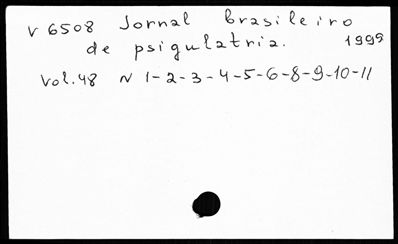 V 6508 Jornal brasileiro
de psigulatria. 1999
Vol. 48 N 1-2-3-4-5-6-8-9-10-11